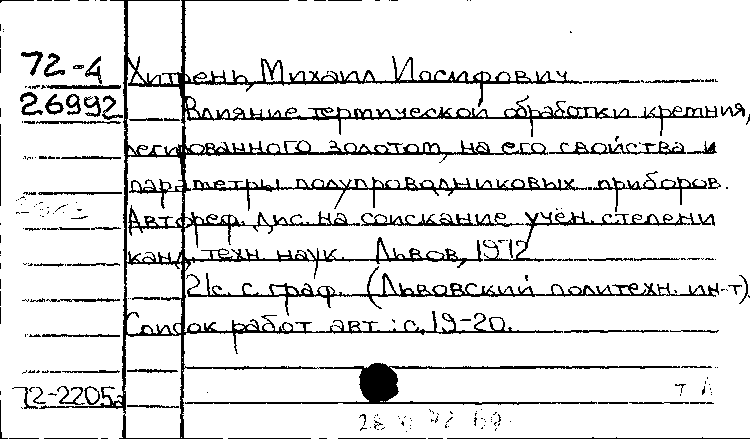 72-4 Хитрень, Михаил Иосифович
26992 Влияние термической обработки кремния,
легированного золотом, на его свойства и
параметры полупроводниковых приборов.
Автореф. дис. на соискание учён. степени
канд. техн. наук. Львов, 1972
21с. с граф. (Львовский политехн. ин-т)
Список работ авт.: с. 19-20.
72-2205а
т Л